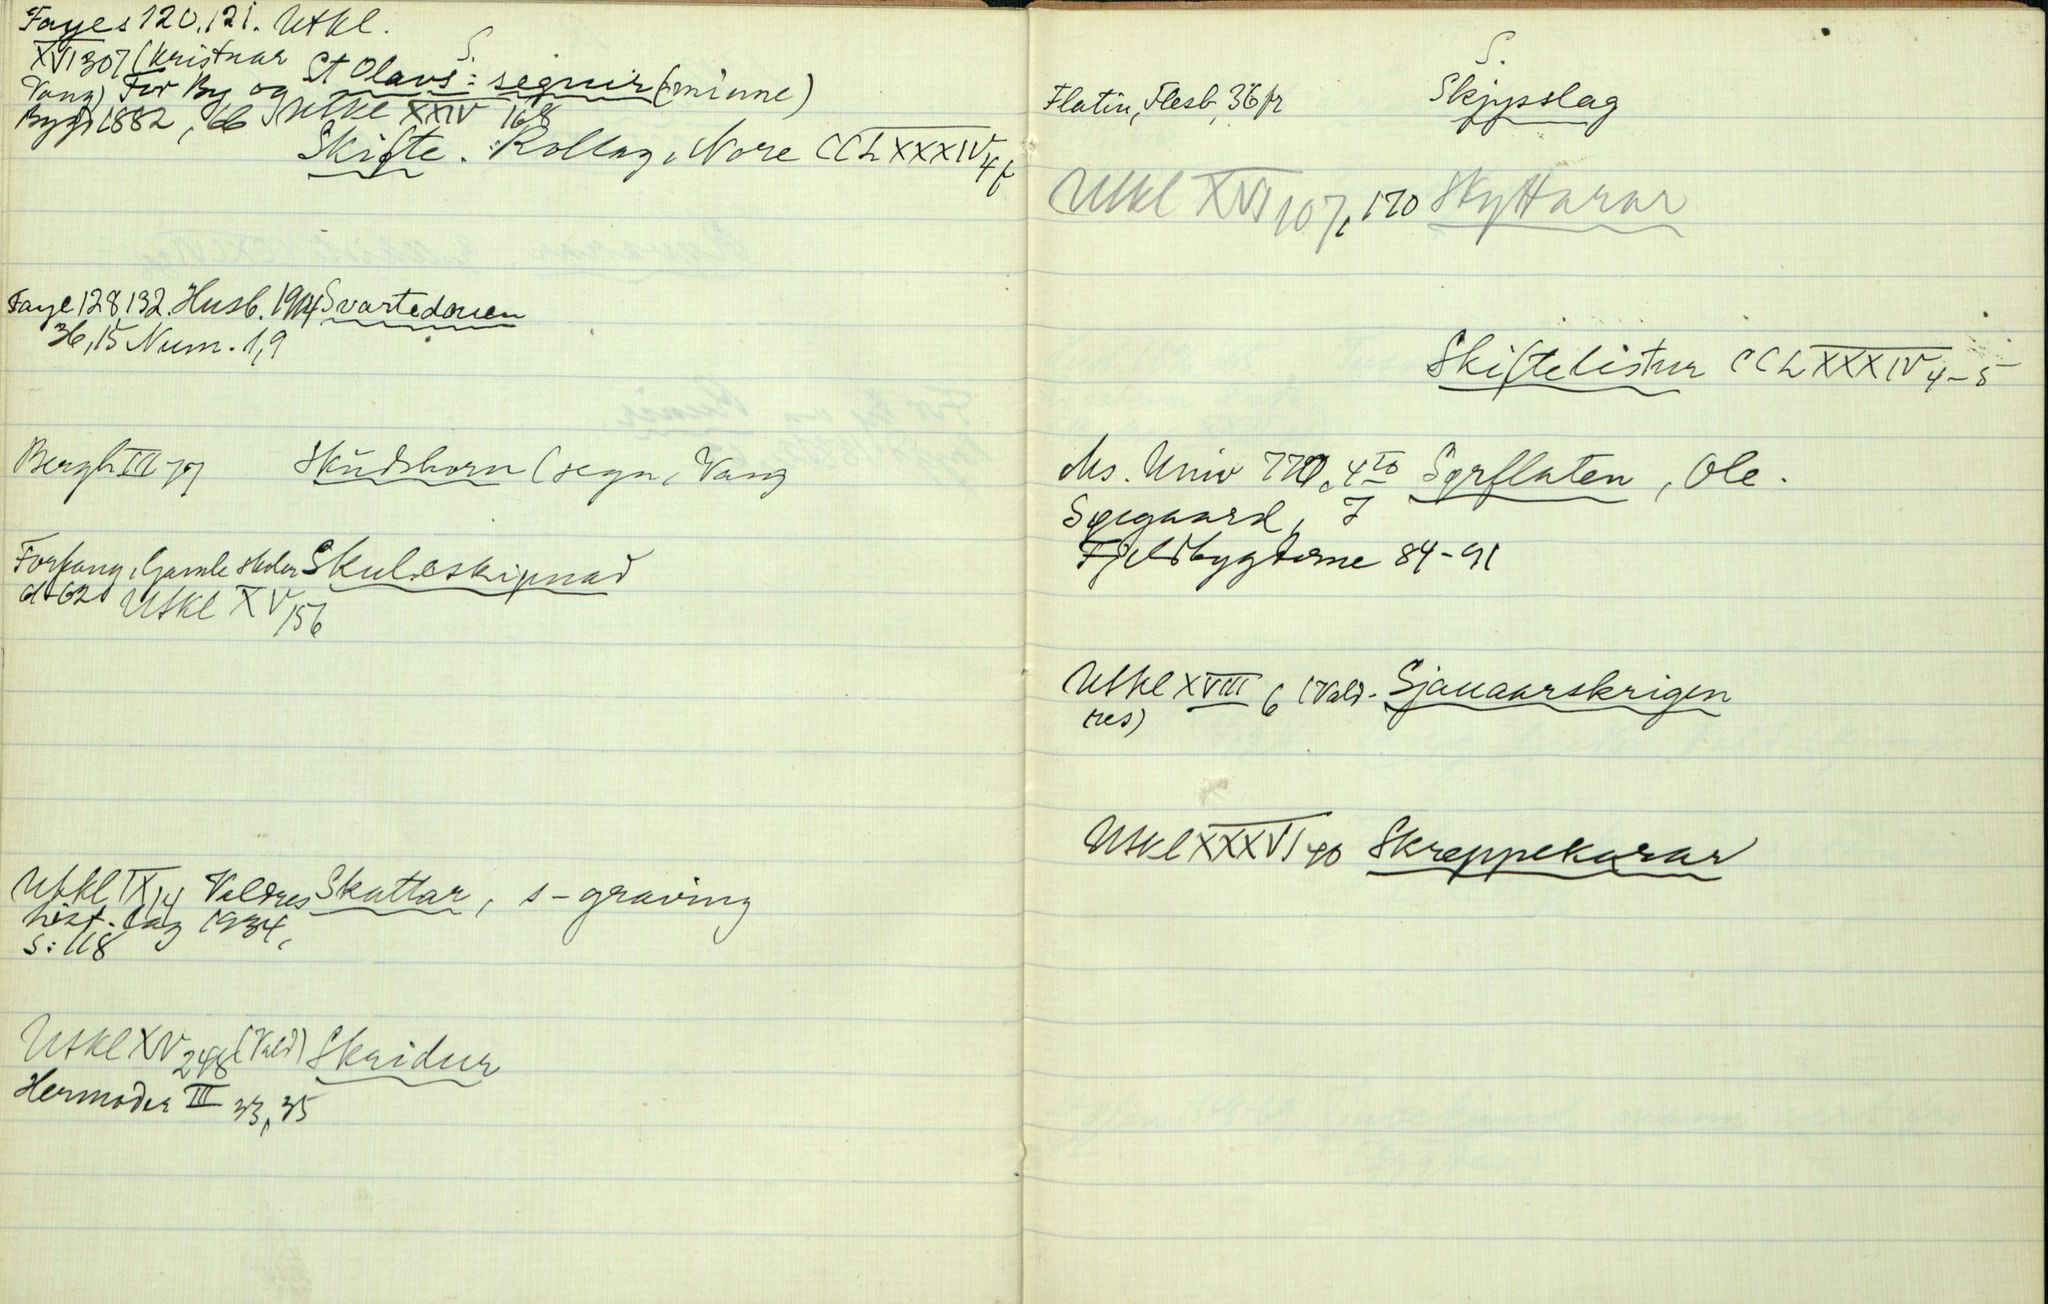 S.
Fayes 120, 121. Utkl.
XVI 307 (kristnar
Vang) For By og St Olavs-segnir (-minne)
Bygd 1882, 66 Utkl XXIV 168
Skifte. Rollag, Nore CCLXXXIV 4 f
Faye 128, 132. Husb. 1914 Svartedauen
36, 15 Num. 1,9
Bergh III 77 Skudshorn (segn, Vang
Forfang, Gamle skular Skuleskipnad
62 Utkl XV 156
Utkl IX 14 Valdres Skattar, s-graving
hist. lag 1934,
s: 118
Utkl XV 248 (Vald) Skridur
Hermoder III 33, 35
S.
Flatin, Flesb, 36 fr Skjysslag
Utkl XVI 107, 170 Skyttarar
Skiftelistur CCLXXXIV 4-5
Ms. Univ 770, 4to Sørflaten, Ole.
Søegaard, I
Fjeldbygderne 84-91
Utkl XVIII 6 (Vald- Sjauaarskrigen
res)
Utkl XXXVI 40 Skreppekarar